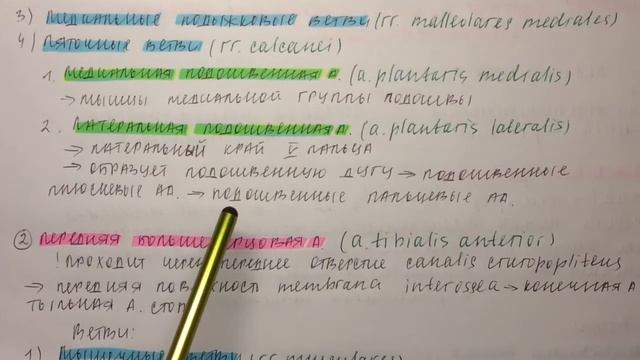 3) МЕДИАЛЬНЫЕ ЛОДЫЖКОВЫЕ ВЕТВИ (rr. malleolares mediales)
4) ПЯТОЧНЫЕ ВЕТВИ (rr. calcanei)
1. МЕДИАЛЬНАЯ ПОДОШВЕННАЯ А. (a. plantaris medialis)
→ МЫШЦЫ МЕДИАЛЬНОЙ ГРУППЫ ПОДОШВЫ
2. ЛАТЕРАЛЬНАЯ ПОДОШВЕННАЯ А. (a. plantaris lateralis)
→ ЛАТЕРАЛЬНЫЙ КРАЙ V ПАЛЬЦА
→ ОБРАЗУЕТ ПОДОШВЕННУЮ ДУГУ → ПОДОШВЕННЫЕ
ПЛЮСНЕВЫЕ АА. → ПОДОШВЕННЫЕ ПАЛЬЦЕВЫЕ АА.
② ПЕРЕДНЯЯ БОЛЬШЕБЕРЦОВАЯ А (a. tibialis anterior)
! ПРОХОДИТ ЧЕРЕЗ ПЕРЕДНЕЕ ОТВЕРСТИЕ canalis cruropopliteus
→ ПЕРЕДНЯЯ ПОВЕРХНОСТЬ membrana interossea → КОНЕЧНАЯ А
ТЫЛЬНАЯ А. СТОП
ВЕТВИ:
1) МЫШЕЧНЫЕ ВЕТВИ (rr. musculares)